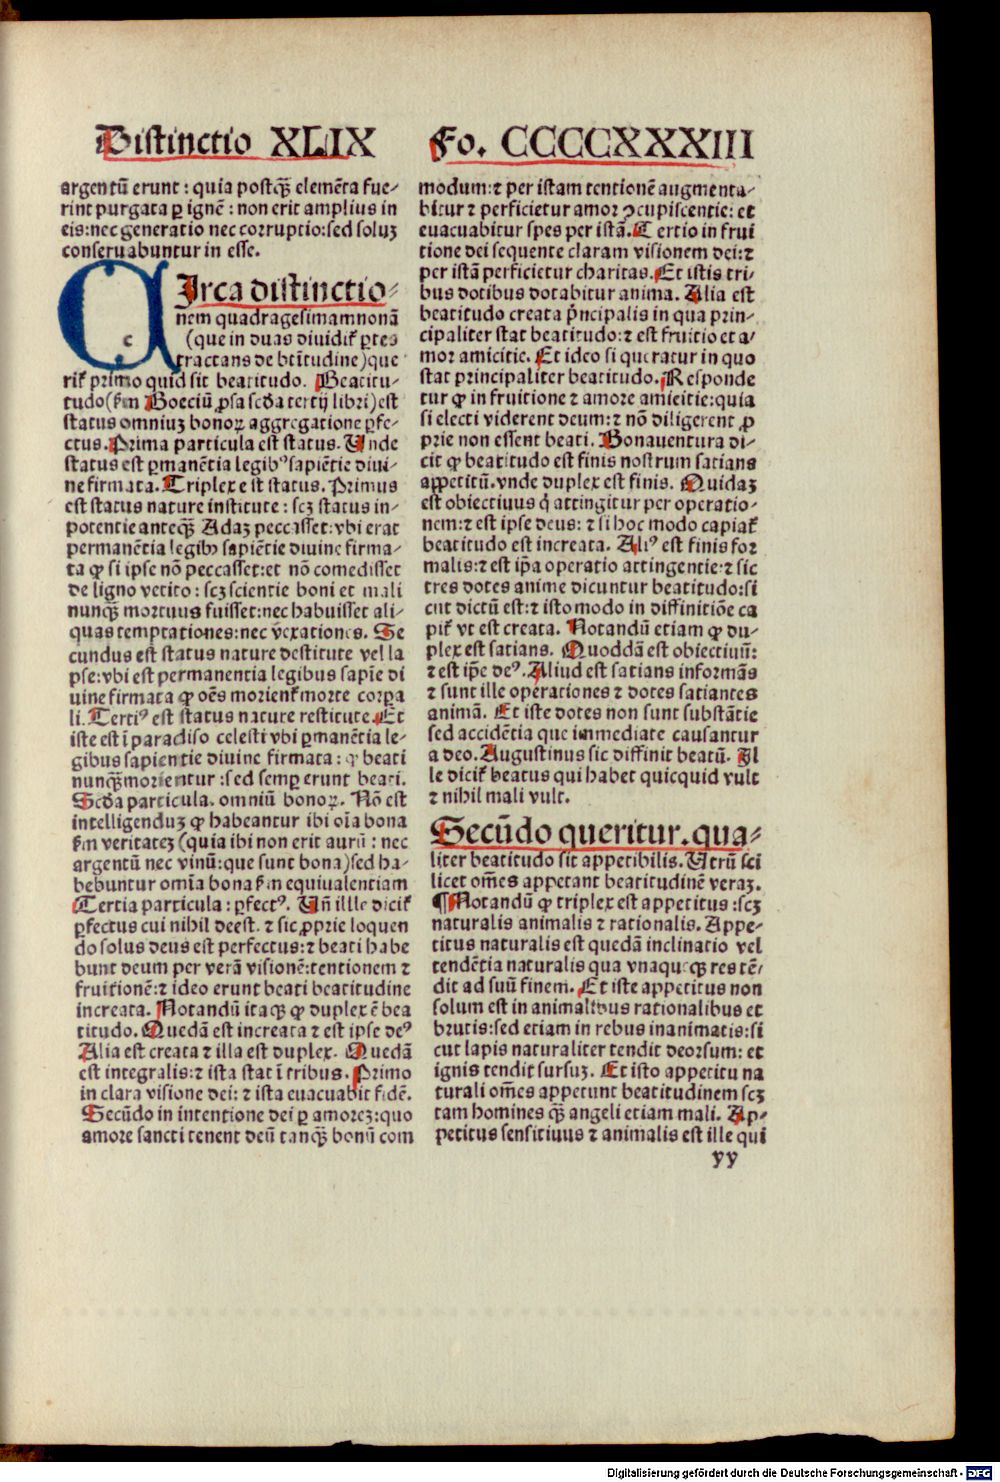 Distinctio XLIX
Fo. CCCCXXXIII
argentū erunt : quia postqȝ̄ elemēta fue-
rint purgata ꝑ ignē : non erit amplius in
eis:nec generatio nec corruptio:sed soluȝ
conseruabuntur in esse.
CIrca distinctio-
nem quadragesimamnonā
(que in duas diuidiť ꝑtes
tractans de btītudine)que
riť primo quid sit beatitudo. Beatitu-
tudo(ẜm Boeciū ꝓsa scďa tertij libri)est
status omniuȝ bonoꝝ aggregatione ꝑfe-
ctus. Prima particula est status. Unde
status est ꝑmanētia legibꝰ sapiētie diui-
ne firmata. Triplex est status. Primus
est status nature institute : scȝ status in-
potentie anteqȝ̄ Adaȝ peccasset:vbi erat
permanētia legibꝰ sapiētie diuine firma-
ta ꝙ si ipse nō peccasset:et nō comedisset
de ligno vetito : scȝ scientie boni et mali
nunqȝ̄ mortuus fuisset:nec habuisset ali-
quas temptationes:nec vexationes. Se
cundus est status nature destitute vel la
pse:vbi est permanentia legibus sapīe di
uine firmata ꝙ oēs morienť morte corpa
li. Tertiꝰ est status nature restitute. Et
iste est ī paradiso celesti vbi ꝑmanētia le-
gibus sapientie diuine firmata : ꝙ beati
nunqȝ̄ morientur : sed semꝑ erunt beati.
Scďa particula. omniū bonoꝝ. Nō est
intelligenduȝ ꝙ habeantur ibi oīa bona
ẜm veritateȝ (quia ibi non erit aurū : nec
argentū nec vinū:que sunt bona)sed ha-
bebuntur omīa bona ẜm equiualentiam
Tertia particula : ꝑfectꝰ. Uñ illle diciť
ꝑfectus cui nihil deest. ⁊ sic ꝓprie loquen
do solus deus est perfectus:⁊ beati habe
bunt deum per verā visionē:tentionem ⁊
fruitionē:⁊ ideo erunt beati beatitudine
increata. Notandū itaqȝ ꝙ duplex ē bea
titudo. Quedā est increata ⁊ est ipse deꝰ
Alia est creata ⁊ illa est duplex. Quedā
est integralis:⁊ ista stat ī tribus. Primo
in clara visione dei: ⁊ ista euacuabit fidē.
Secūdo in intentione dei ꝑ amoreȝ:quo
amore sancti tenent deū tanqȝ̄ bonū com
modum:⁊ per istam tentionē augmenta-
bitur ⁊ perficietur amor ꝯcupiscentie: et
euacuabitur spes per istā. Tertio in frui
tione dei sequente claram visionem dei:⁊
per istā perficietur charitas. Et istis tri-
bus dotibus dotabitur anima. Alia est
beatitudo creata p̄ncipalis in qua prin-
cipaliter stat beatitudo:⁊ est fruitio et a-
mor amicitie. Et ideo si queratur in quo
stat principaliter beatitudo. Responde
tur ꝙ in fruitione ⁊ amore amicitie:quia
si electi viderent deum:⁊ nō diligerent ꝓ
prie non essent beati. Bonauentura di-
cit ꝙ beatitudo est finis nostrum satians
appetitū.vnde duplex est finis. Quidaȝ
est obiectiuus q̇ attingitur per operatio-
nem:⁊ est ipse deus: ⁊ si hoc modo capiať
beatitudo est increata. Aliꝰ est finis for
malis:⁊ est ip̄a operatio attingentie:⁊ sic
tres dotes anime dicuntur beatitudo:si
cut dictū est:⁊ isto modo in diffinitiōe ca
piť vt est creata. Notandū etiam ꝙ du-
plex est satians. Quoddā est obiectiuū:
⁊ est ip̄e deꝰ. Aliud est satians informās
⁊ sunt ille operationes ⁊ dotes satiantes
animā. Et iste dotes non sunt substātie
sed accidētia que immediate causantur
a deo. Augustinus sic diffinit beatū. Il
le diciť beatus qui habet quicquid vult
⁊ nihil mali vult.
Secūdo queritur. qua-
liter beatitudo sit appetibilis. Utrū sci
licet om̄es appetant beatitudinē veraȝ.
¶Notandū ꝙ triplex est appetitus :scȝ
naturalis animalis ⁊ rationalis. Appe-
titus naturalis est quedā inclinatio vel
tendētia naturalis qua vnaqueqȝ res tē-
dit ad suū finem. Et iste appetitus non
solum est in animalibus rationalibus et
brutis:sed etiam in rebus inanimatis:si
cut lapis naturaliter tendit deorsum: et
ignis tendit sursuȝ. Et isto appetitu na
turali om̄es appetunt beatitudinem scȝ
tam homines qȝ̄ angeli etiam mali. Ap-
petitus sensitiuus ⁊ animalis est ille qui
yy
Digitalisierung gefördert durch die Deutsche Forschungsgemeinschaft - DFG